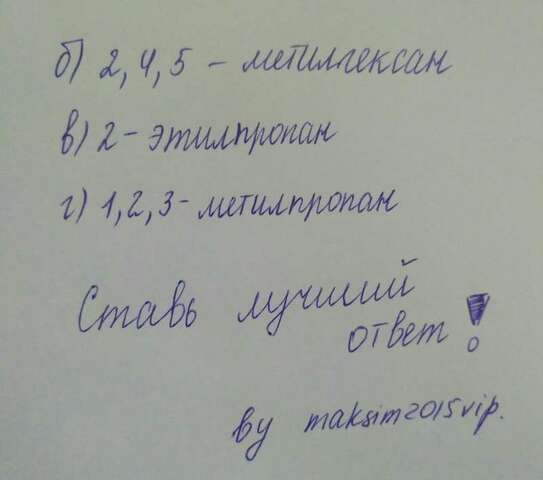 б) 2,4,5 - метилгексан
в) 2- этилпропан
г) 1,2,3- метилпропан
Ставь лучший
ответ !
by maksim2015vip.